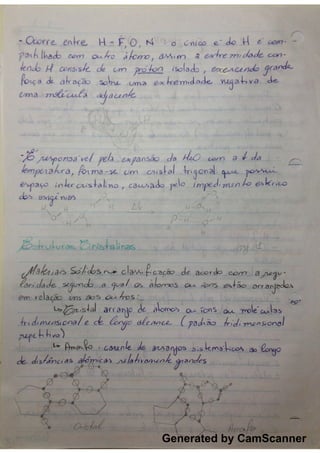 - Ocorre entre H - F, O, N o único e⁻ do H é com-
partilhado com outro átomo, assim a extremidade con-
tendo H consiste de um próton isolado, exercendo grande
força de atração sobre uma extremidade negativa de
uma molécula adjacente
responsável pela expansão da H₂O com a ↓ da
temperatura, forma-se um cristal trigonal que possui
espaço intercristalino, causado pelo impedimento estérico
dos oxigênios
Estruturas Cristalinas
Materiais Sólidos → classificação de acordo com a regu-
laridade segundo a qual os átomos ou íons estão arranjados
em relação uns aos outros:
↳ Cristal arranjo de átomos ou íons ou moléculas
tridimensional e de longo alcance (padrão tridimensional
repetitivo)
↳ Amorfo: carente de arranjos sistemáticos ao longo
de distâncias atômicas relativamente grandes
Cristal Amorfo
Generated by CamScanner